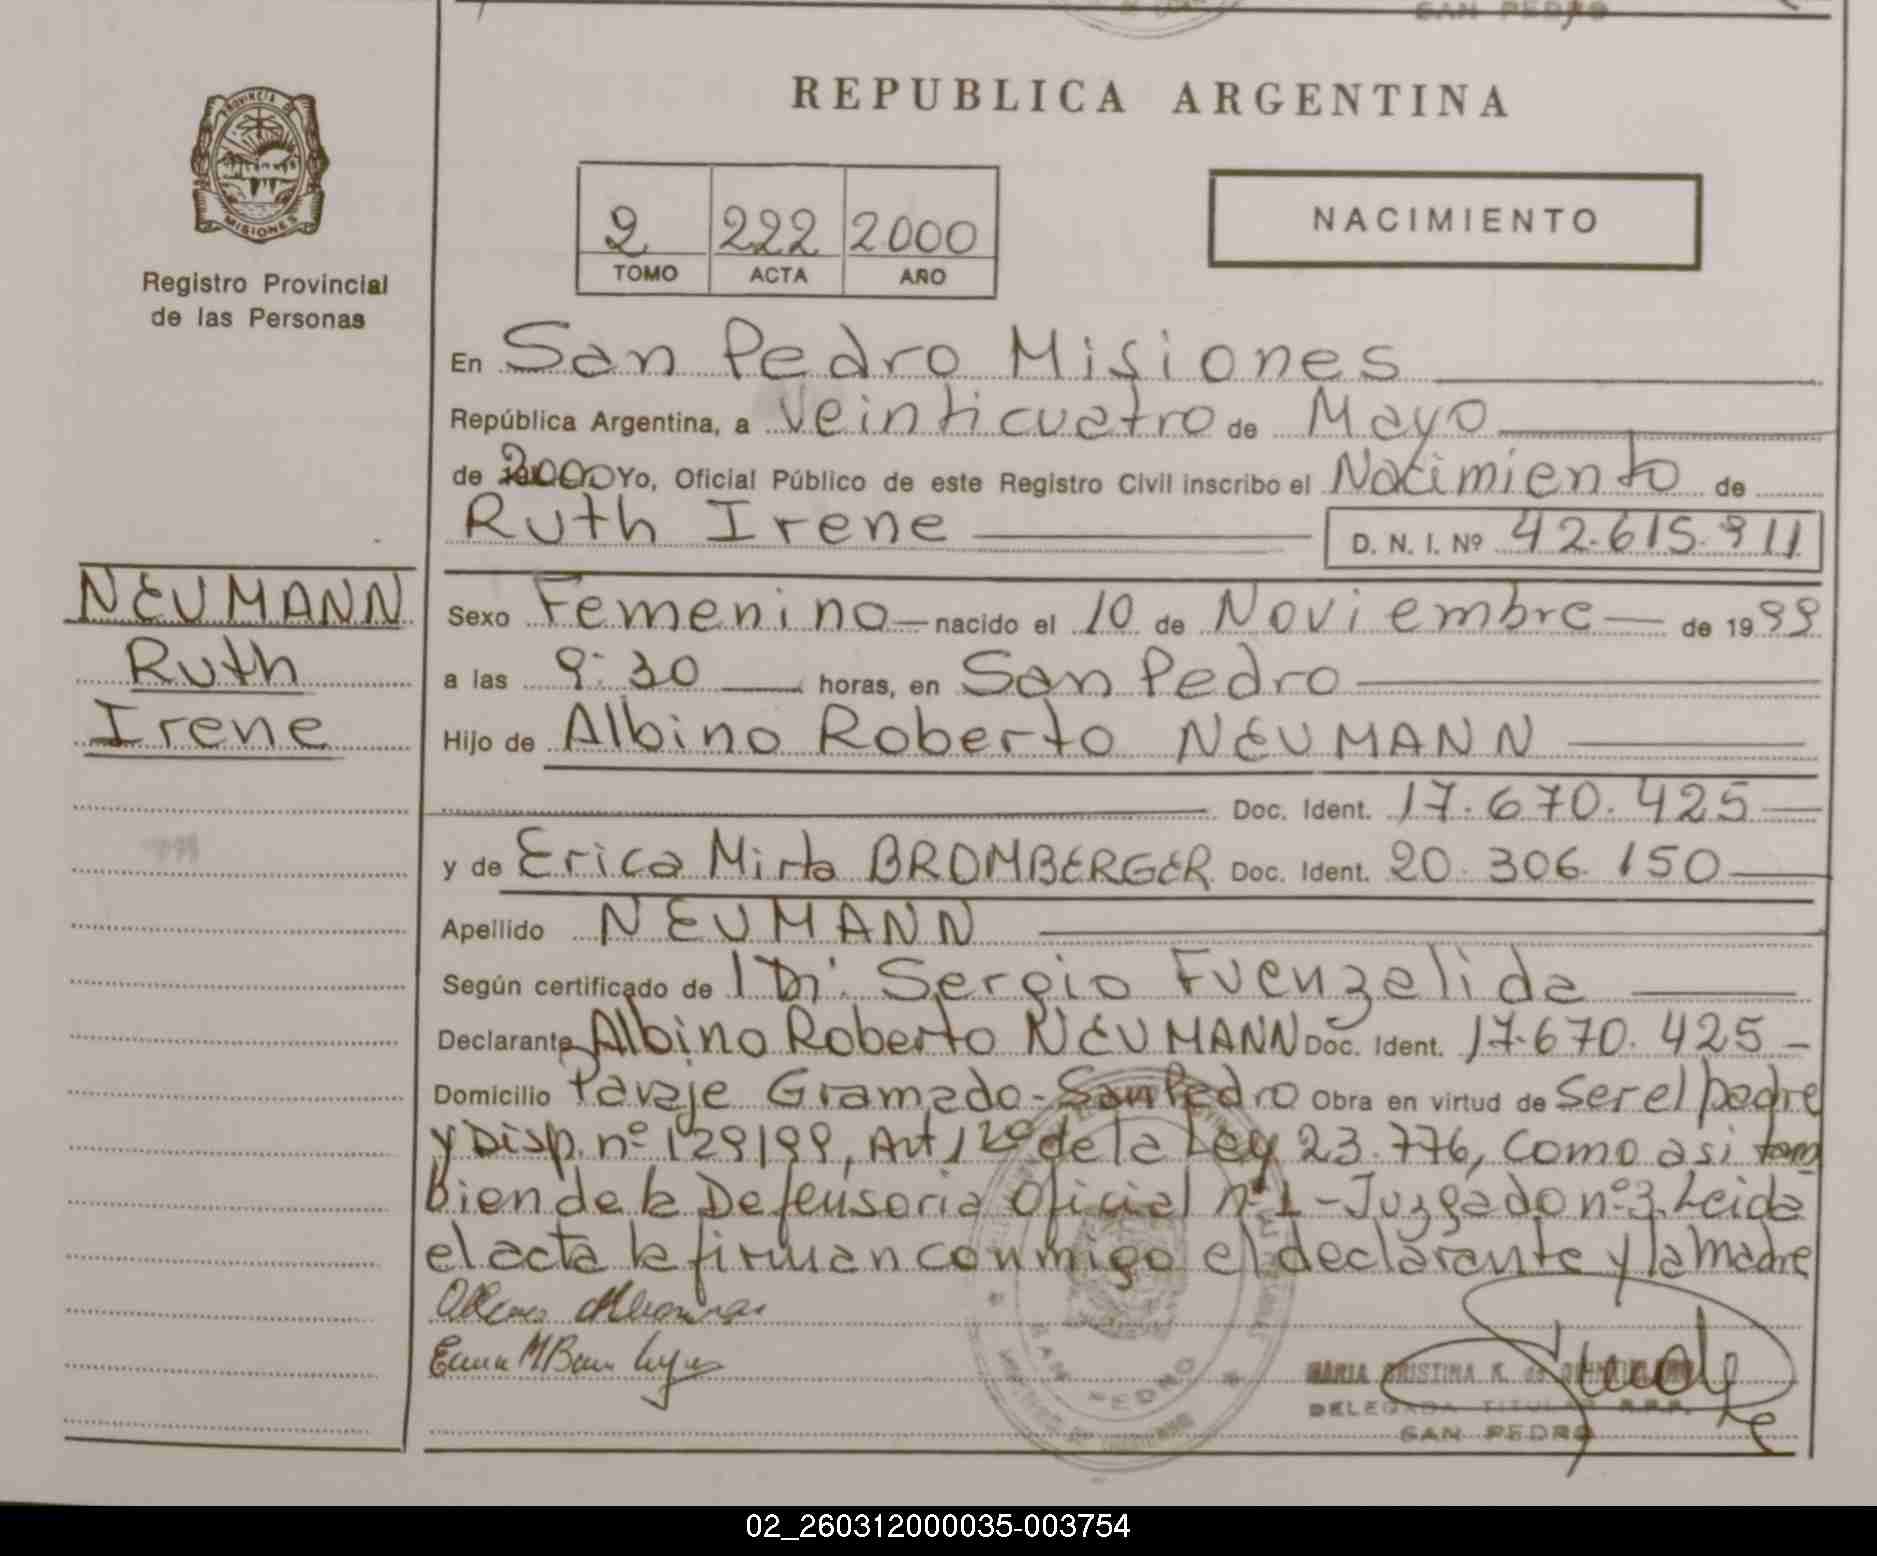 SAN PEDRO
REPUBLICA ARGENTINA
PROVINCIA DE
MISIONES
Registro Provincial
de las Personas
2 222 2000
TOMO ACTA AÑO
NACIMIENTO
En San Pedro Misiones
República Argentina, a Veinticuatro de Mayo
de 2000 Yo, Oficial Público de este Registro Civil inscribo el Nacimiento de
Ruth Irene D. N. I. Nº 42.615.911
NEUMANN
Ruth
Irene
Sexo Femenino nacido el 10 de Noviembre de 1999
a las 9:30 horas, en San Pedro
Hijo de Albino Roberto NEUMANN
Doc. Ident. 17.670.425
y de Erica Mirta BROMBERGER Doc. Ident. 20.306.150
Apellido NEUMANN
Según certificado de Dr. Sergio Fuenzalida
Declarante Albino Roberto NEUMANN Doc. Ident. 17.670.425
Domicilio Paraje Gramado - San Pedro Obra en virtud de Ser el padre
y Disp. nº 129/99, Art 12º de la Ley 23.776, Como asi tam
bien de la Defensoria Oficial nº 1 - Juzgado nº 3. Leida
el acta la firman conmigo el declarante y la madre
SAN PEDRO
MARIA CRISTINA K. de
DELEGADA TITULAR R.P.P.
SAN PEDRO
02_260312000035-003754